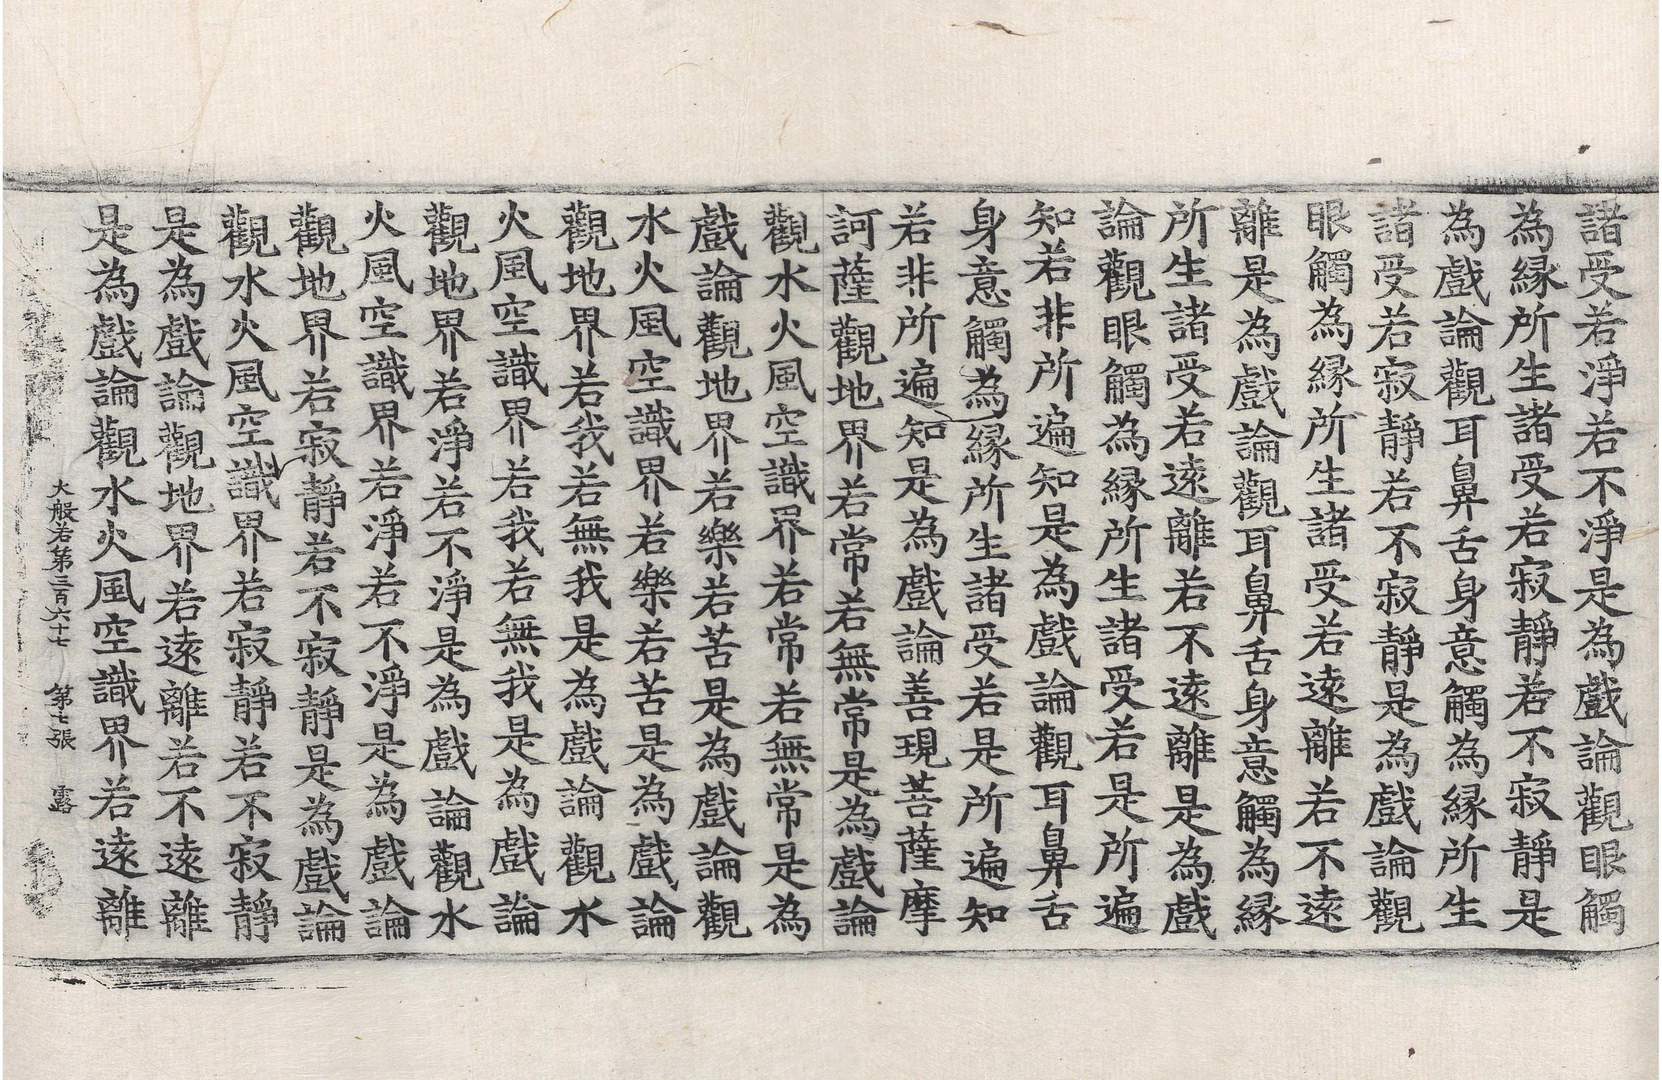 諸受若淨若不淨是為戲論觀眼觸
為緣所生諸受若寂靜若不寂靜是
為戲論觀耳鼻舌身意觸為緣所生
諸受若寂靜若不寂靜是為戲論觀
眼觸為緣所生諸受若遠離若不遠
離是為戲論觀耳鼻舌身意觸為緣
所生諸受若遠離若不遠離是為戲
論觀眼觸為緣所生諸受若是所遍
知若非所遍知是為戲論觀耳鼻舌
身意觸為緣所生諸受若是所遍知
若非所遍知是為戲論善現菩薩摩
訶薩觀地界若常若無常是為戲論
觀水火風空識界若常若無常是為
戲論觀地界若樂若苦是為戲論觀
水火風空識界若樂若苦是為戲論
觀地界若我若無我是為戲論觀水
火風空識界若我若無我是為戲論
觀地界若淨若不淨是為戲論觀水
火風空識界若淨若不淨是為戲論
觀地界若寂靜若不寂靜是為戲論
觀水火風空識界若寂靜若不寂靜
是為戲論觀地界若遠離若不遠離
是為戲論觀水火風空識界若遠離
大般若第三百六十七 第七張 露